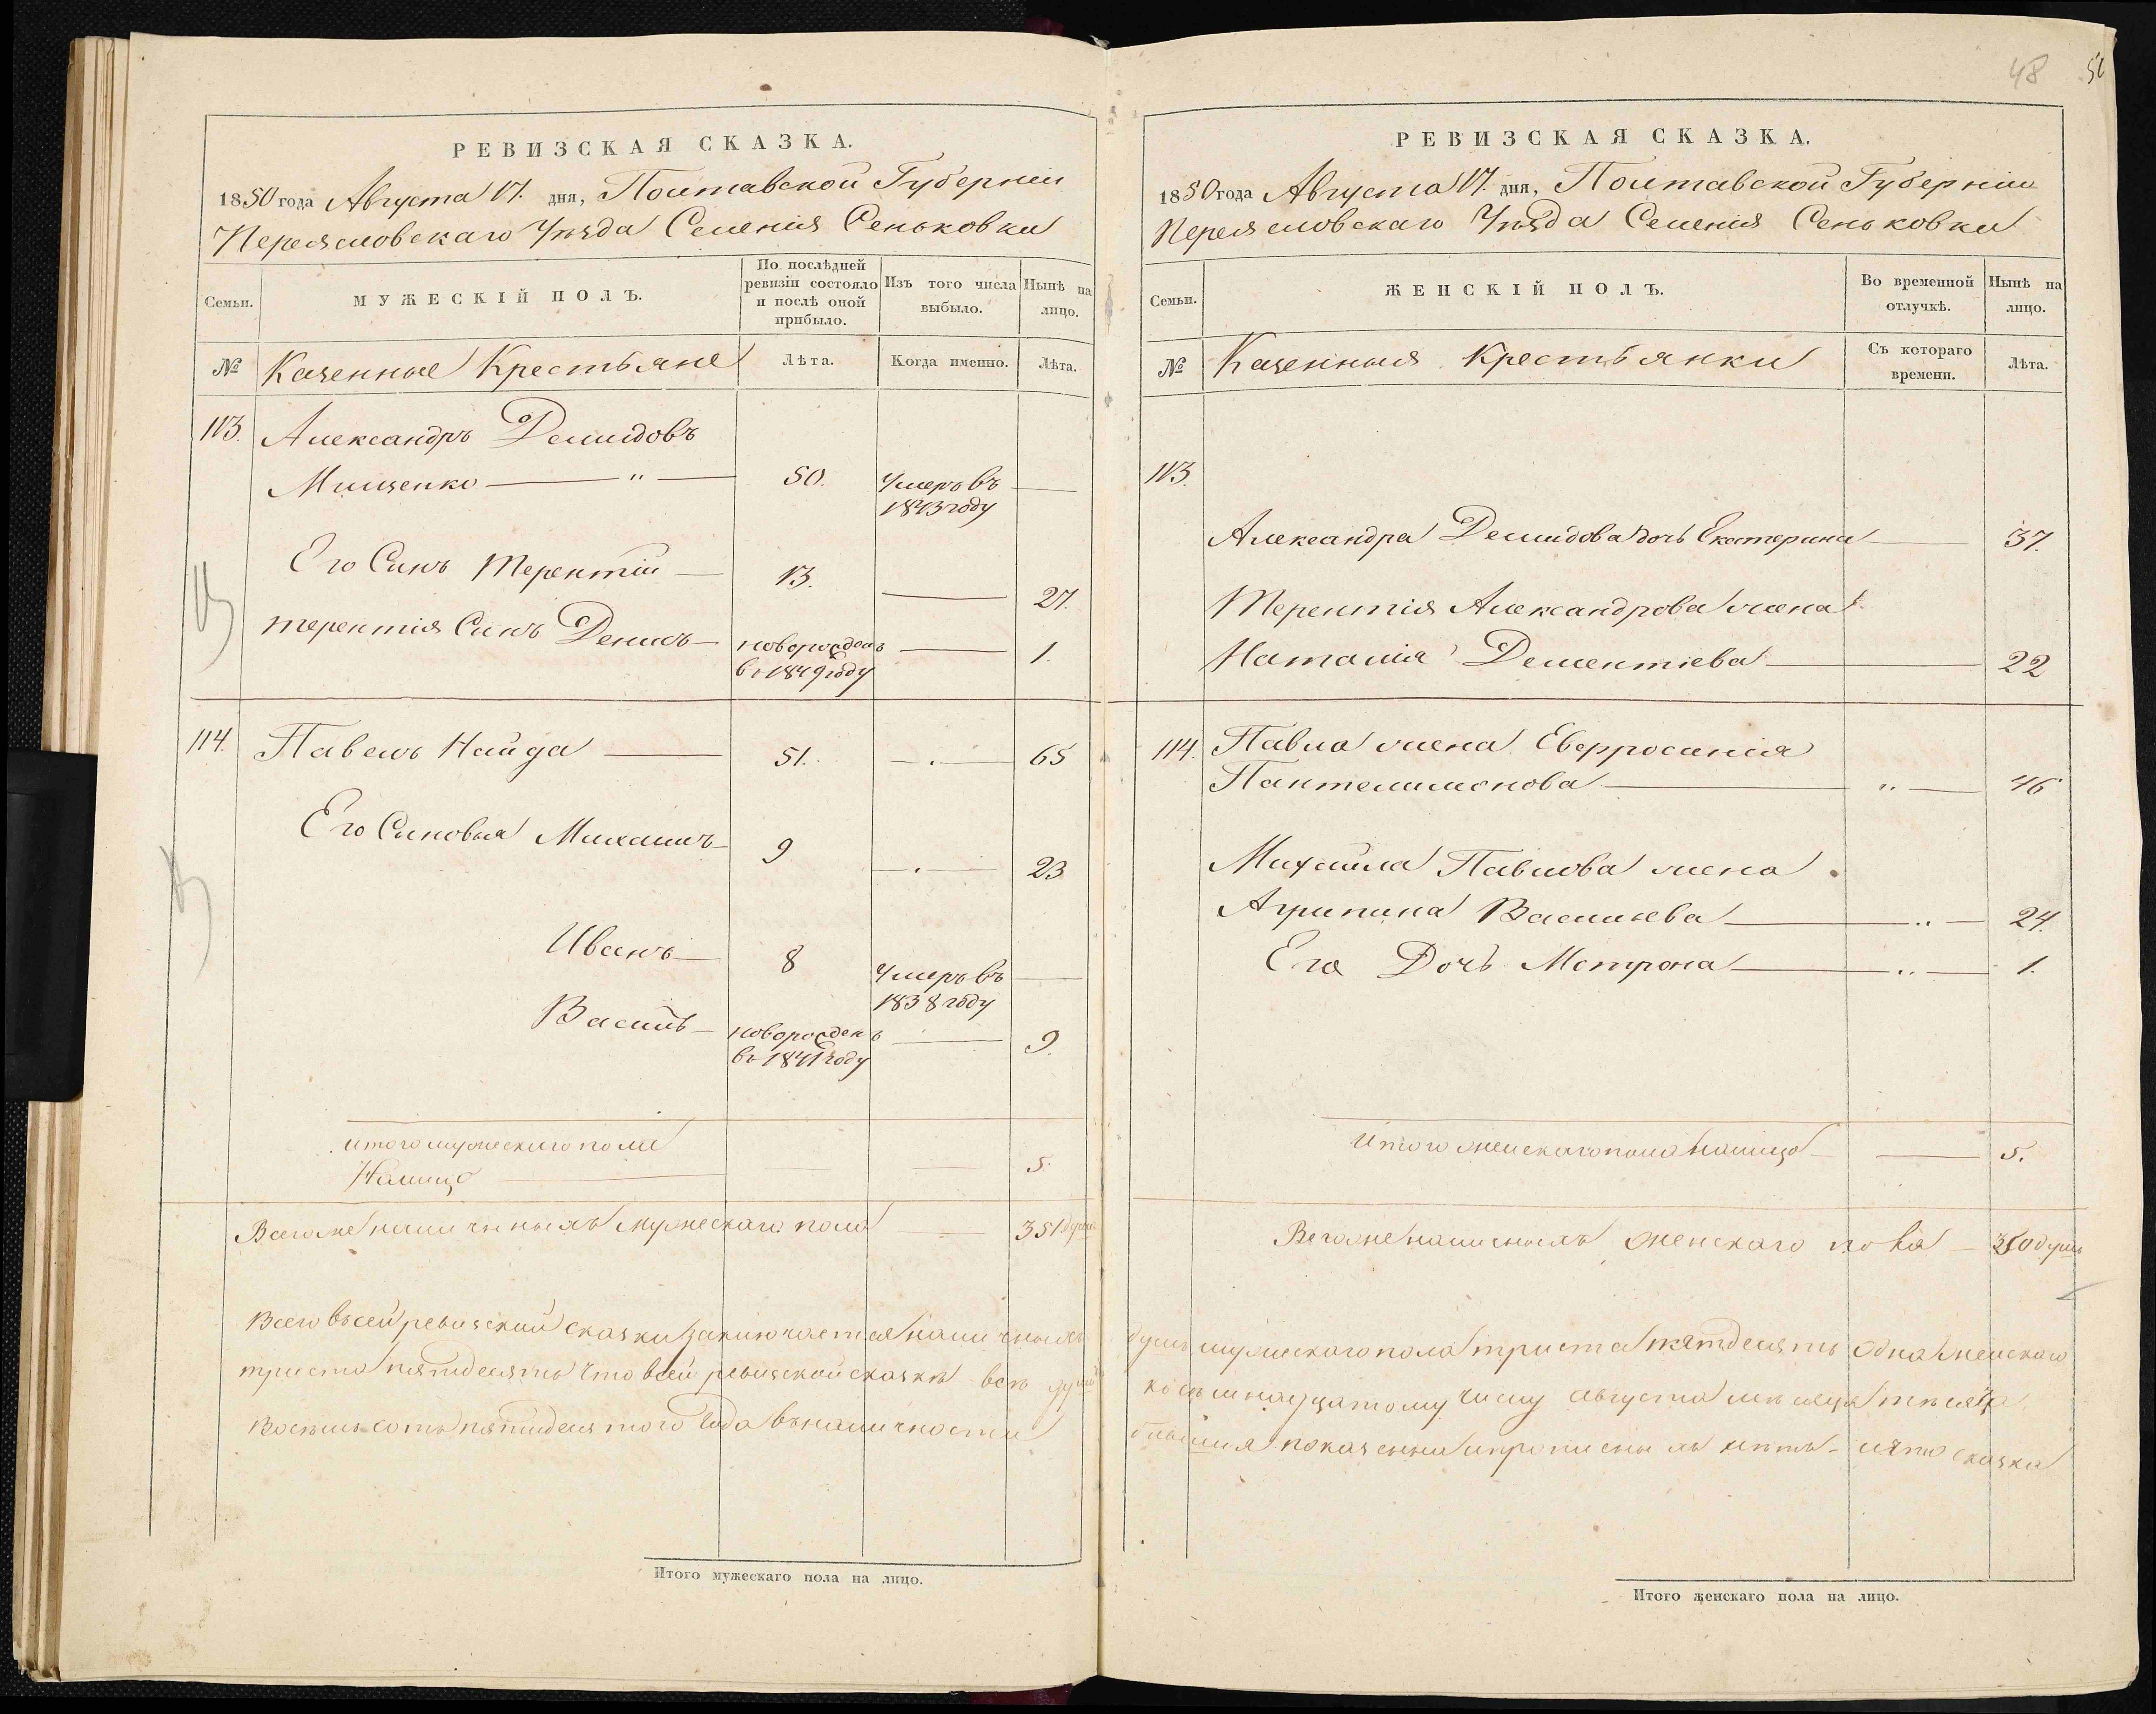 48 
РЕВИЗСКАЯ СКАЗКА.
1850 года Августа 17. дня, Полтавской Губерніи
Переясловскаго Уѣзда Селенія Сеньковки
Семьи.
МУЖЕСКІЙ ПОЛЪ.
По послѣдней ревизіи состояло и послѣ оной прибыло.
Изъ того числа выбыло.
Нынѣ на лицо.
№
Казенные Крестьяне
Лѣта.
Когда именно.
Лѣта.
113. Александръ Демидовъ
Мищенко — " — 50. Умеръ въ —
1843 году
Его Синъ Терентій — 13. — 27.
Терентія Синъ Денисъ — новорожденъ — 1.
въ 1849 году
114. Павелъ Найда — 51. — . — 65
Его Синовья Михаилъ — 9 — . — 23
Иванъ — 8 Умеръ въ —
1838 году
Василь — новорожденъ — 9.
въ 1841 году
итого мужескаго пола
Налицо — 5.
Всего же наличныхъ мужескаго пола — 351 душа
Всего въ сей ревизской сказки заключается наличныхъ
триста пятдесятъ что в сей ревизской сказкѣ всѣ души
восемьсотъ пятидесятого года въ наличности
Итого мужескаго пола на лицо.
РЕВИЗСКАЯ СКАЗКА.
1850 года Августа 17. дня, Полтавской Губерніи
Переясловскаго Уѣзда Селенія Сеньковки
Семьи.
ЖЕНСКІЙ ПОЛЪ.
Во временной отлучкѣ.
Нынѣ на лицо.
№
Казенныя Крестьянки
Съ котораго времени.
Лѣта.
113.
Александра Демидова дочь Екатерина — 37.
Терентія Александрова жена
Наталія Дементіева — 22
114. Павла жена Евфросинія
Пантелимонова — " — 46
Михайла Павлова жена
Агрипина Васильева — " — 24.
Его Дочь Мотрона — " — 1.
Итого женскаго пола налицо — 5.
Всего же наличныхъ женскаго пола — 350 душъ
душъ мужескаго пола триста пятдесятъ одна женскаго
ко семнадцатому числу августа месяца тысяча
показанны и прописныхъ нѣтъ — и что сказка
Итого женскаго пола на лицо.